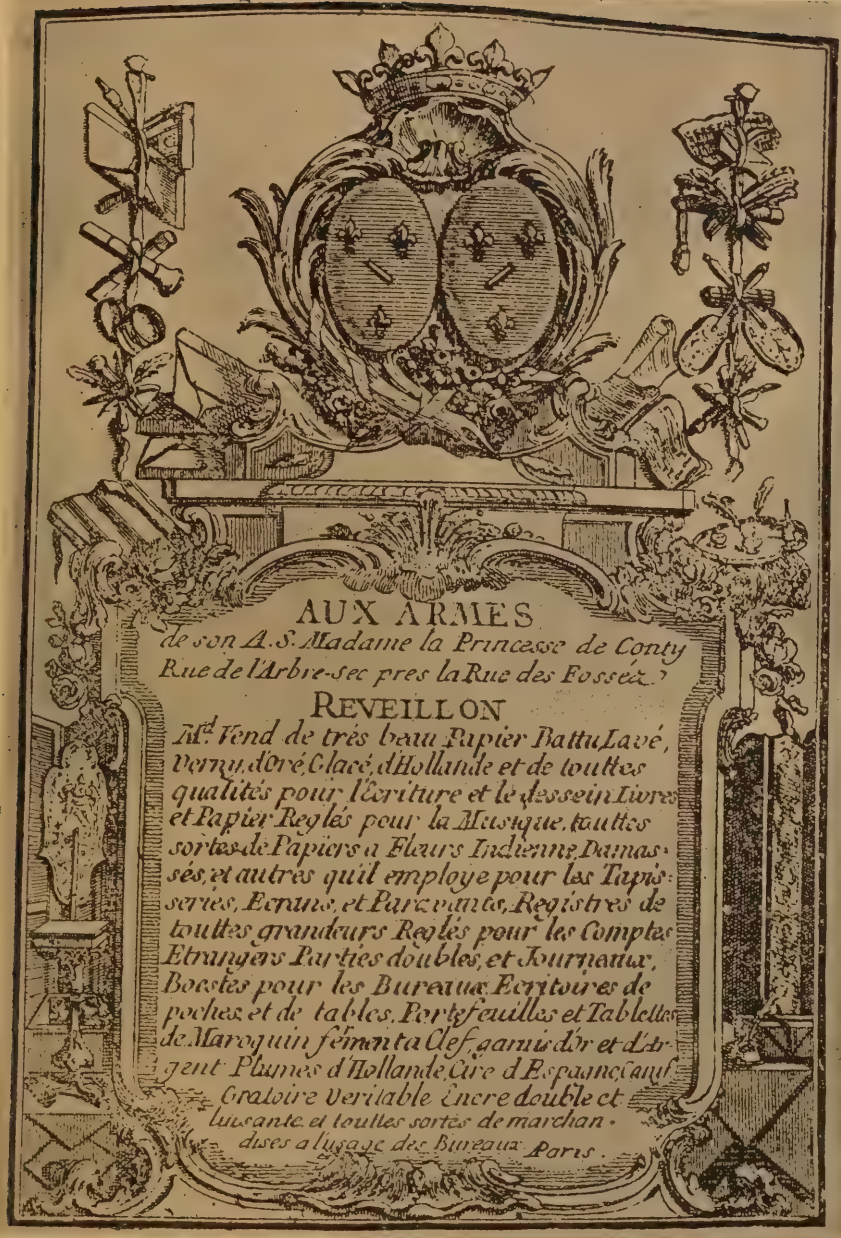 AUX ARMES
de son A. S. Madame la Princesse de Conty
Rue de l'Arbre-sec pres la Rue des Fossez
REVEILLON
Md. Vend de trés beau Papier Battu, Lavé,
Verny, d'Oré, Glacé, d'Hollande et de touttes
qualités pour l'Ecriture et le dessein Livres
et Papier Reglés pour la Musique, touttes
sortes de Papiers a Fleurs Indienne, Damas-
sés, et autres qu'il employe pour les Tapis-
series, Ecrans, et Paravants, Registres de
touttes grandeurs Reglés pour les Comptes
Etrangers Parties doubles, et Journaux,
Boestes pour les Bureaux, Ecritoires de
poches et de tables, Portefeuilles et Tablettes
de Maroquin fément a Clef, garnis d'or et d'Ar-
gent Plumes d'Hollande, Cire d'Espagne, Canif,
Gratoire Veritable Encre double et
luisante et touttes sortes de marchan-
dises a l'usage des Bureaux Paris.